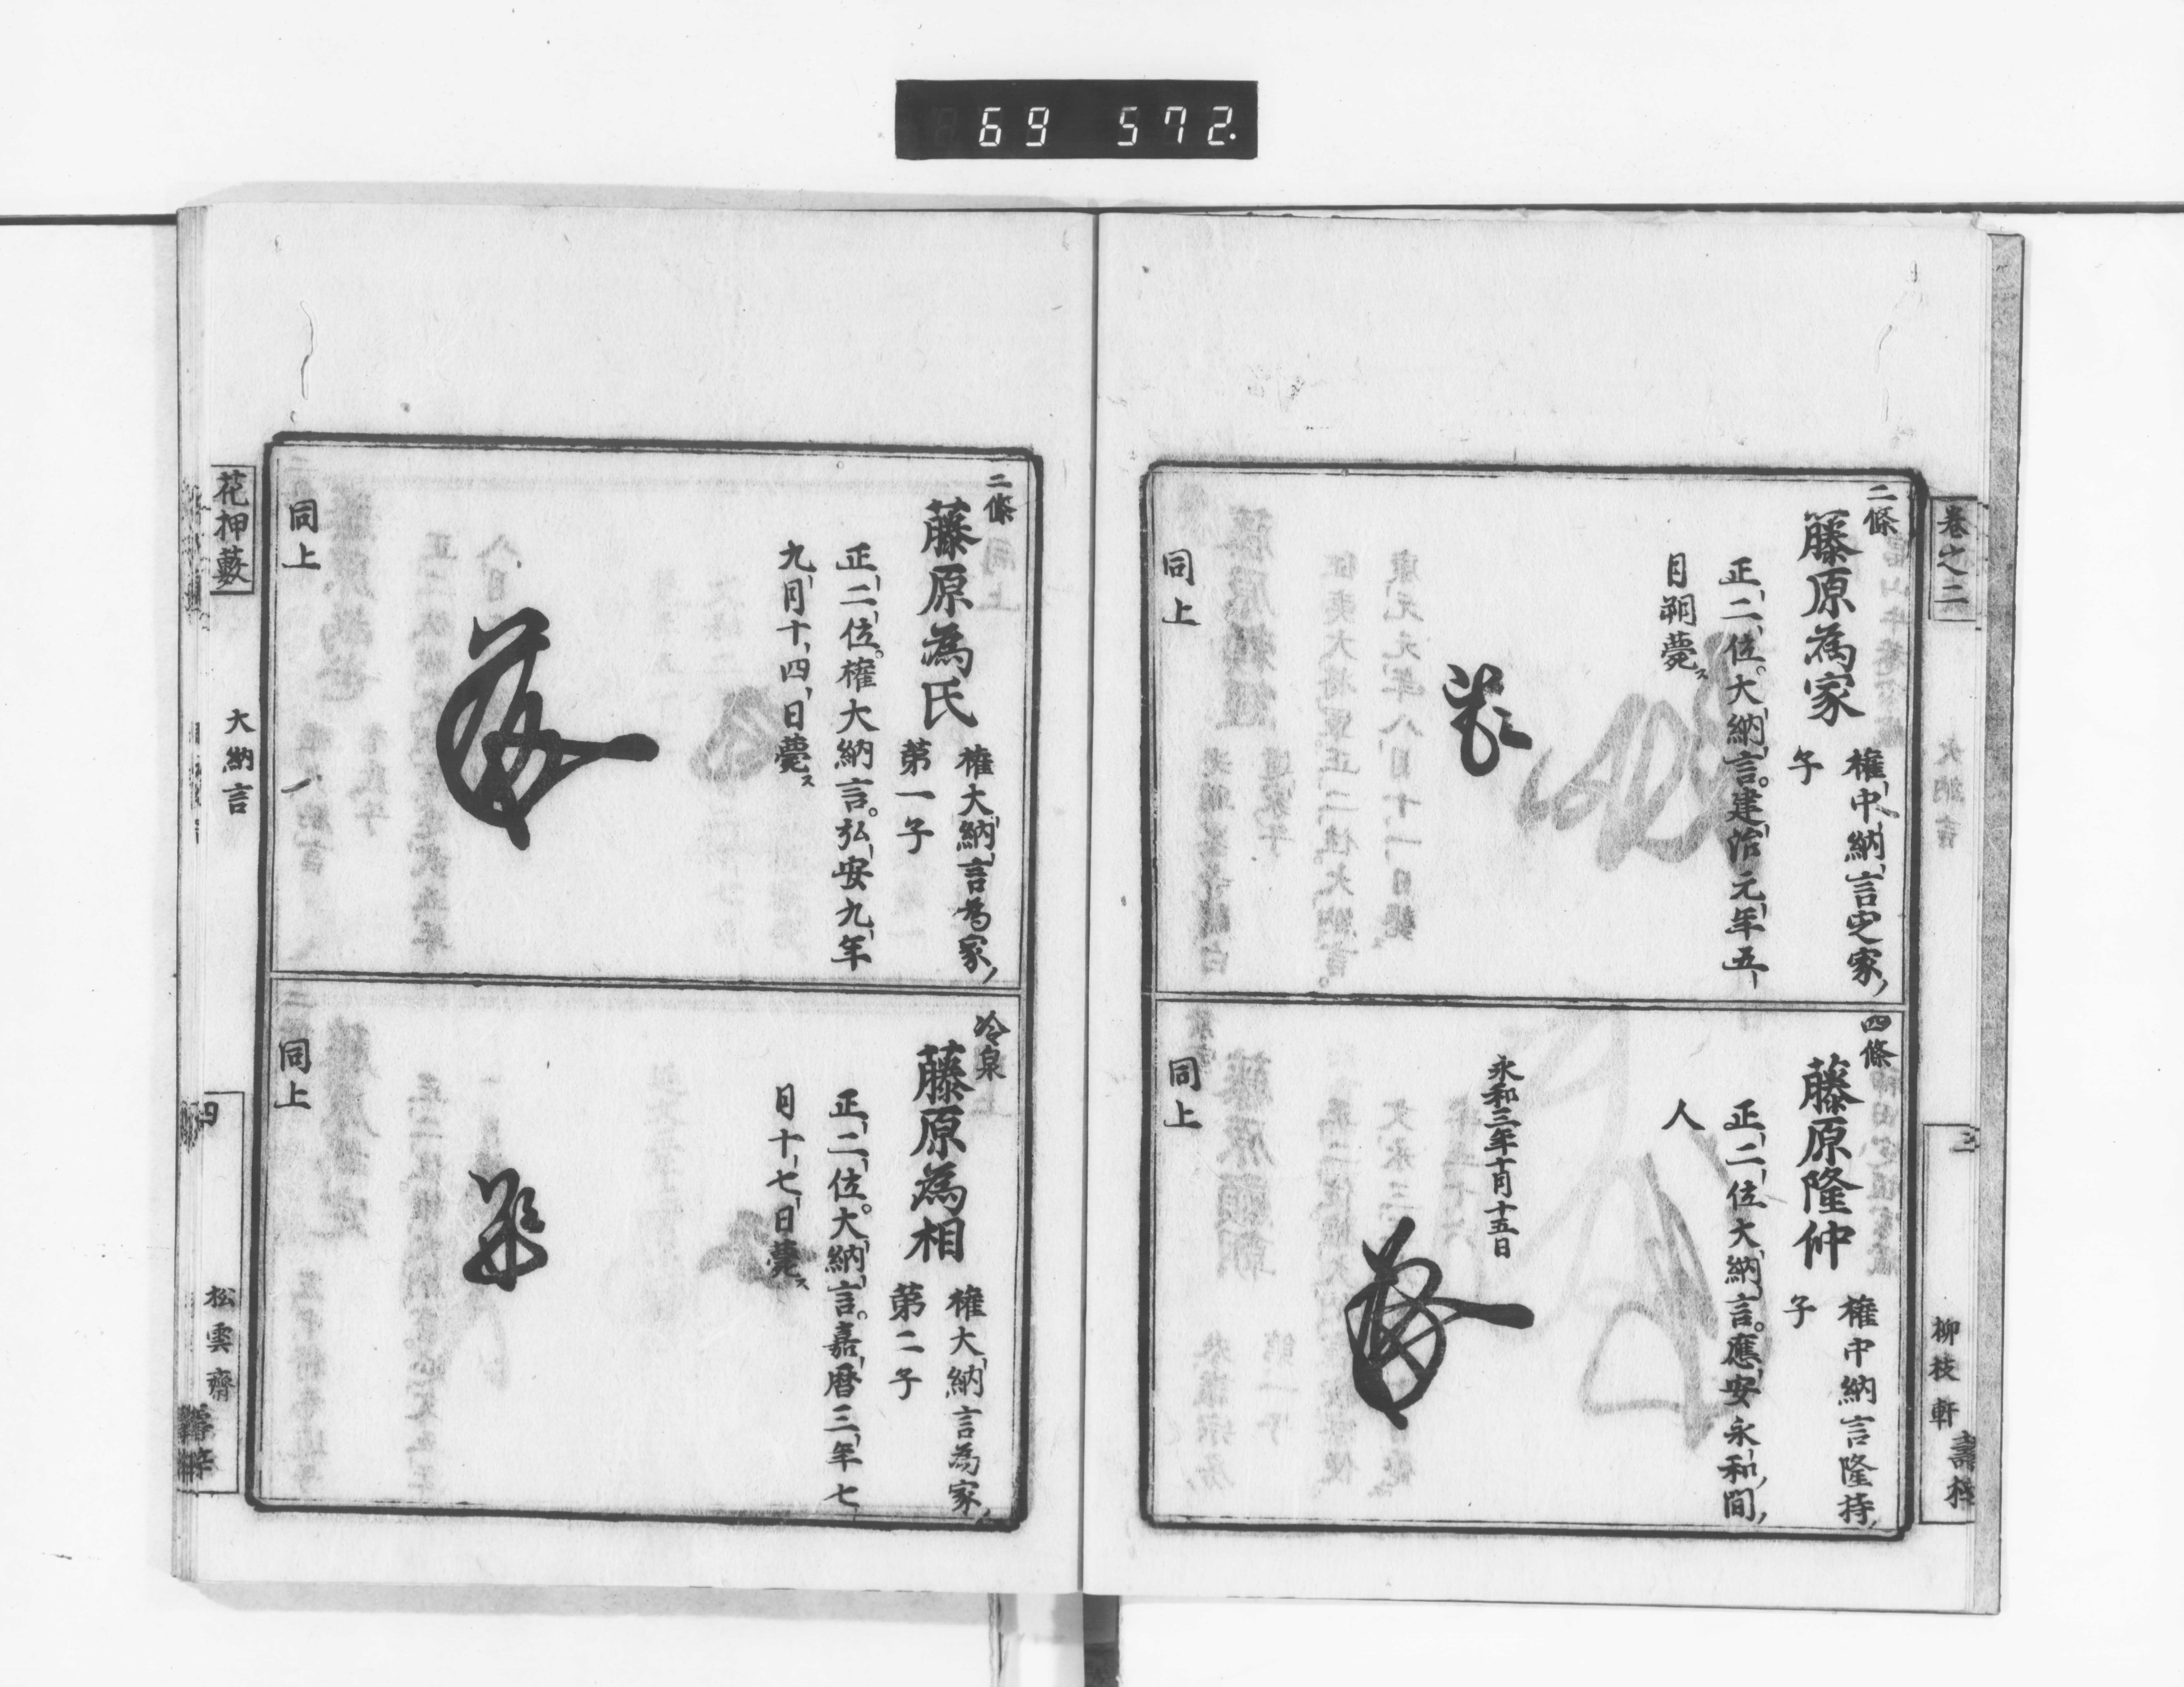 69 572.
卷之二
三
柳枝軒
二條
藤原為家
權中納言定家
子
正二位。大納言。建治元年五
月朔薨ス
同上
四條
藤原隆仲
權中納言隆持
子
正二位大納言。應安永和間
人
永和三年十月十五日
同上
二條
藤原為氏
權大納言為家
第一子
正二位。權大納言。弘安九年
九月十四日薨ス
同上
冷泉
藤原為相
權大納言為家
第二子
正二位。大納言。嘉暦三年七
月十七日薨ス
同上
花押藪
大納言
四
松雲齋